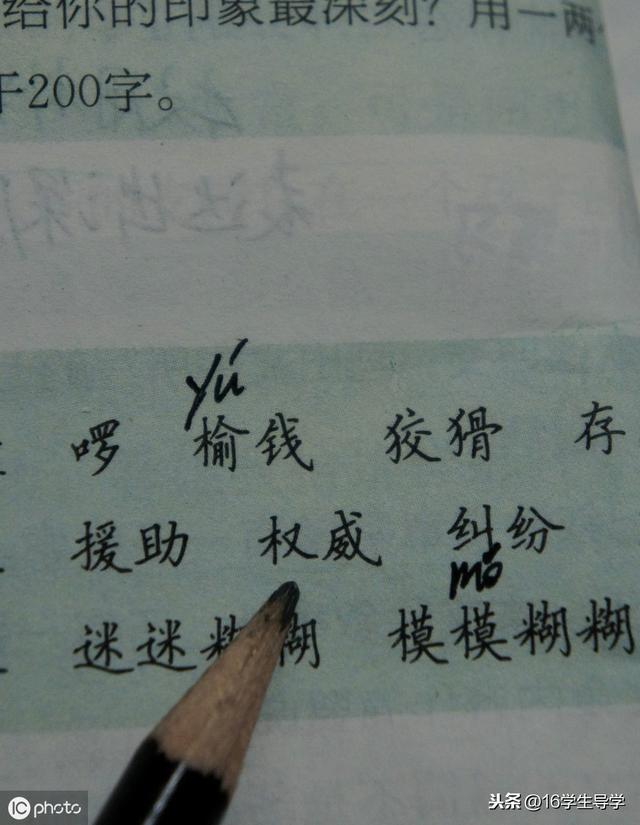 给你的印象最深刻？用一两
于200字。
表达出深
yú
啰 榆钱 狡猾 存
援助 权威 纠纷
mó
迷迷糊糊 模模糊糊
iC photo
头条 @16学生导学